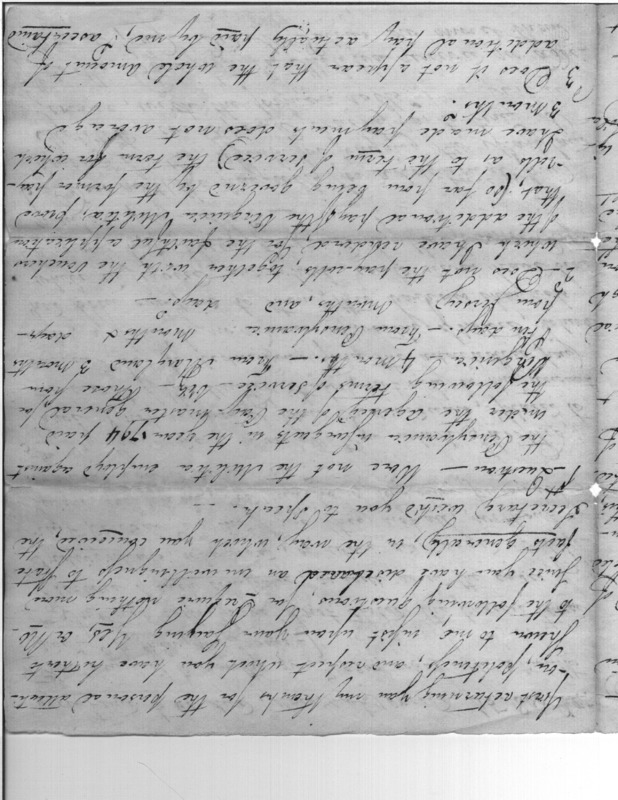 First returning you my thanks for the personal atten-
-tion, politeness, and respect which you have hitherto
shown to me, insist upon your saying Yes, or No.
to the following questions, for I require nothing more
since you have disclosed an unwillingness to state
facts generally, in the way, which you conceived, the
Secretary wished you to speak. —
1st Question — Were not the Militia employed against
the Pensylvania insurgents in the year 1794 paid
under the agency of the Pay-Master general, for
the following terms of service. Viz — Those from
Virginia 4 months. — From Maryland 3 months
days. — From Pensylvania months & days —
from Jersey months and, days. —
2d Does not the pay-rolls, together with the vouchers
which I have rendered, for the faithful application
of the additional pay of the Virginia Militia, prove
that, (so far from being governed by the former pay-
-rolls as to the term of service) the term for which
I have made payments does not average
3 months.?
3d Does it not appear that the whole amount of
additional pay, actually paid by me, ascertained